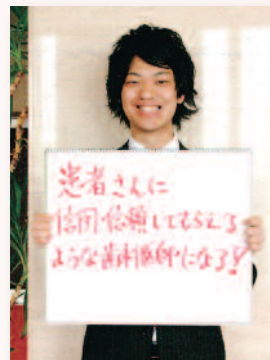 患者さんに
信用・信頼してもらえる
ような歯科医師になる!